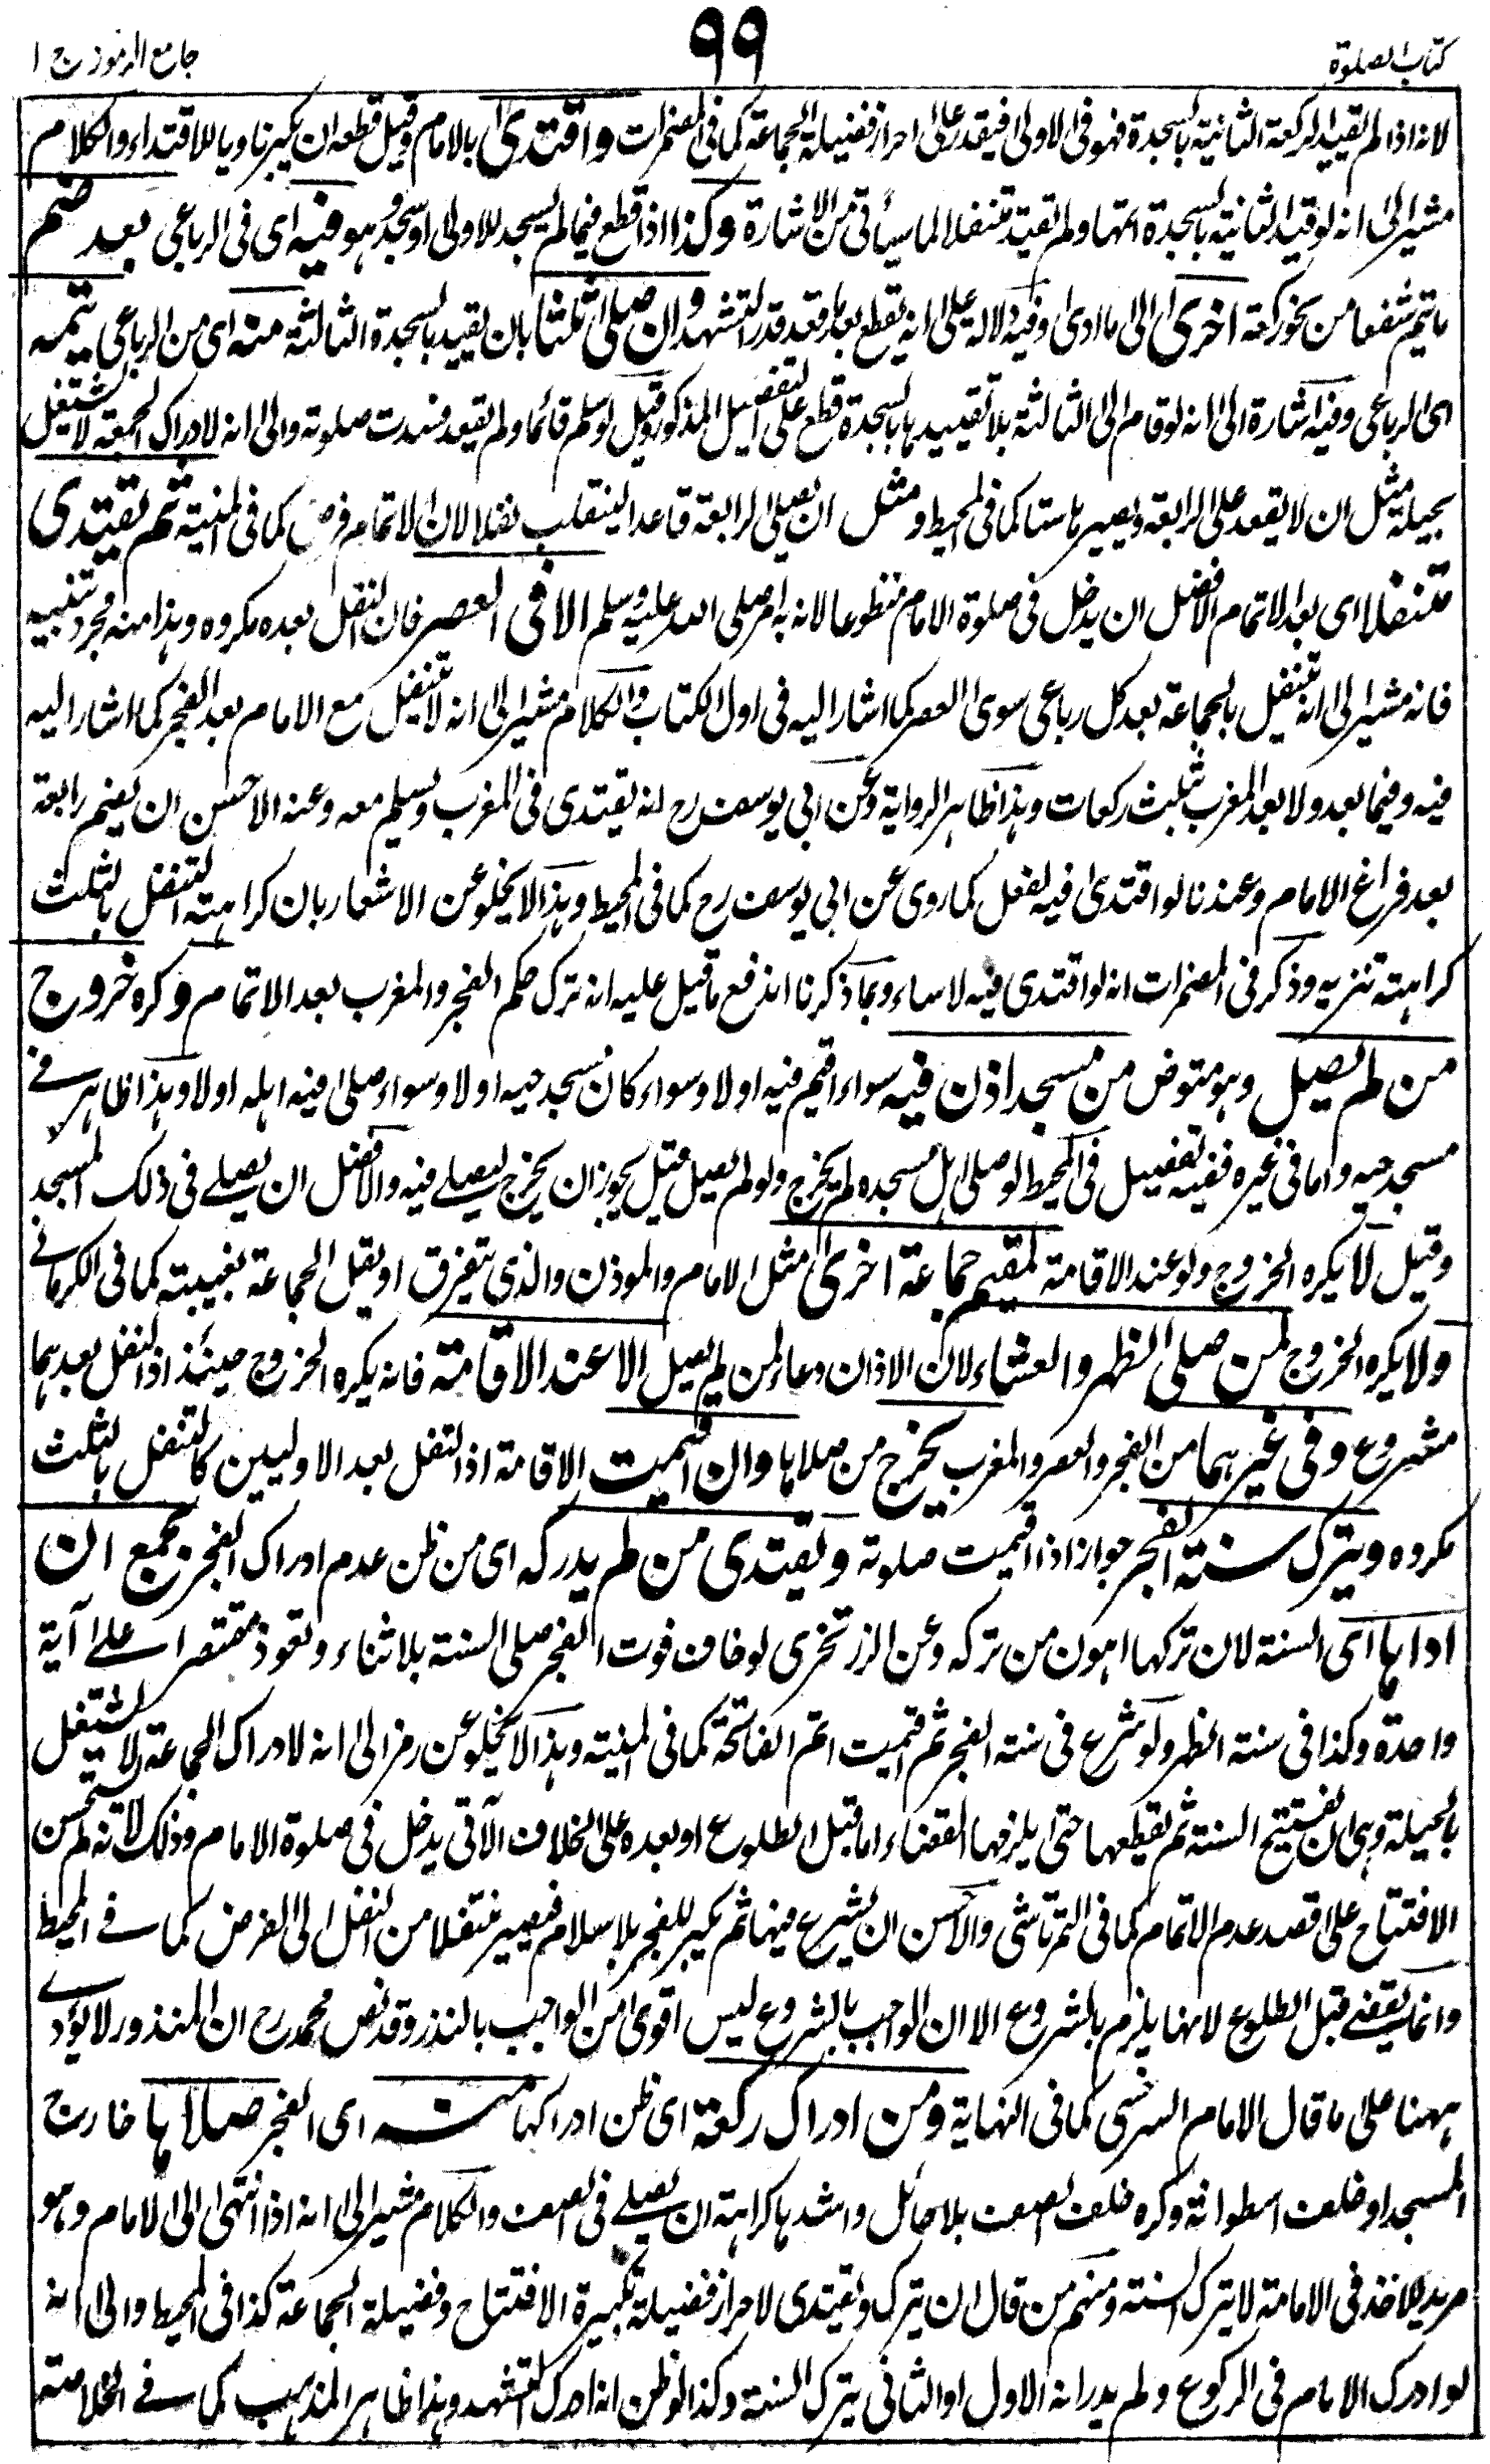 كتاب الصلوة
٩٩
جامع الرموز ج ا
لانه اذا لم يقيد الركعة الثانية بالسجدة فهو فى الاولى فيقدر على احراز فضيلة الجماعة كما فى المضمرات واقتدى بالامام وقيل قطعه ان يكبر ناويا للاقتداء والكلام
مشير الى انه لو قيد الثانية بالسجدة اتمها ولم يقتد متنفلا لما سيأتى من الاشارة وكذا اذا قطع فيما لم يسجد للاولى او سجد وهو فيه اى فى الرباعى بعد ضم
ما يتم شفعا من نحو ركعة اخرى الى ما ادى وفيه دلالة على انه يقطع بعد ما قعد قدر التشهد وان صلى ثلثا بان يقيد بالسجدة الثالثة منه اى من الرباعى يتمه
اى الرباعى وفيه اشارة الى انه لو قام الى الثالثة بلا تقييدها بالسجدة قطع على التفصيل المذكور وقيل لو سلم قائما ولم يقعد فسدت صلوته والى انه لادراك الجمعة لا يشتغل
بحيلة مثل ان لا يقعد على الرابعة ويصير ها ستا كما فى المحيط ومثل ان يصلى الرابعة قاعدا لينقلب نفلا لان الاتمام فرض كما فى المنية ثم يقتدى
متنفلا اى بعد الاتمام الافضل ان يدخل فى صلوة الامام متطوعا لانه به امر صلى الله عليه وسلم الا فى العصر فان النفل بعده مكروه وهذا منه مجرد تنبيه
فانه مشير الى انه يتنفل بالجماعة بعد كل رباعى سوى العصر كما اشار اليه فى اول الكتاب والكلام مشير الى انه لا يتنفل مع الامام بعد الفجر كما اشار اليه
فيه وفيما بعد ولا بعد المغرب بثلث ركعات وهذا ظاهر الرواية وعن ابى يوسف رح انه يقتدى فى المغرب ويسلم معه وعنه الاحسن ان يضم رابعة
بعد فراغ الامام وعندنا لو اقتدى فيه لفعل كما روى عن ابى يوسف رح كما فى المحيط وهذا لا يخلو عن الاشعار بان كراهة التنفل بالثلث
كراهته تنزيه وذكر فى المضمرات انه لو اقتدى فيه لاساء وبما ذكرنا اندفع ما قيل عليه انه ترك حكم الفجر والمغرب بعد الاتمام وكره خروج
من لم يصل وهو متوض من مسجد اذن فيه سواء اقيم فيه اولا وسواء كان مسجد حيه اولا وسواء صلى فيه اهله اولا وهذا ظاهر فى
مسجد حيه واما فى غيره ففيه تفصيل فى المحيط لو صلى اهل مسجده لم يخرج ولو لم يصل قيل يجوز ان يخرج ليصلى فيه والافضل ان يصلى فى ذلك المسجد
وقيل لا يكره الخروج ولو عند الاقامة لمقيم جماعة اخرى مثل الامام والموذن والذى يتفرق او يقل الجماعة بغيبته كما فى الكرمانى
ولا يكره الخروج لمن صلى الظهر والعشاء لان الاذان دعاء لمن لم يصل الا عند الاقامة فانه يكره الخروج حينئذ اذ النفل بعدهما
مشروع وفى غيرهما من الفجر والعصر والمغرب يخرج من صلاها وان اقيمت الاقامة اذ التنفل بعد الاوليين كالتنفل بالثلث
مكروه ويترك سنة الفجر جوازا اذا اقيمت صلوته ويقتدى من لم يدركه اى من ظن عدم ادراك الفجر بجمع ان
اداها اى السنة لان تركها اهون من تركه وعن الزرنخرى لو خاف فوت الفجر صلى السنة بلا ثناء وتعوذ مقتصرا على آية
واحدة وكذا فى سنة الظهر ولو شرع فى سنة الفجر ثم اقيمت اتم الفاتحة كما فى المنية وهذا لا يخلو عن رمز الى انه لادراك الجماعة لا يشتغل
بالحيلة وهى ان يفتتح السنة ثم يقطعها حتى يلزمها القضاء اما قبل الطلوع او بعده على الخلاف الآتى يدخل فى صلوة الامام وذلك لانه لم يستحسن
الافتتاح على قصد عدم الاتمام كما فى التمرتاشى والاحسن ان يشرع فيها ثم يكبر للفجر بلا سلام فيصير منتقلا من النفل الى الفرض كما فى المحيط
وانما يقضى قبل الطلوع لانها يلزم بالشروع الا ان الواجب بالشروع ليس اقوى من الواجب بالنذر وقد نص محمد رح ان المنذور لا يؤدى
ههنا على ما قال الامام السرخسى كما فى النهاية ومن ادراك ركعة اى ظن ادراكها منه اى الفجر صلاها خارج
المسجد او خلف اسطوانة وكره خلف الصف بلا حائل واشدها كراهة ان يصلى فى الصف والكلام مشير الى انه اذا انتهى الى الامام وهو
مريد الاخذ فى الامامة لا يترك السنة ومنهم من قال ان يترك ويقتدى لاحراز فضيلة تكبيرة الافتتاح وفضيلة الجماعة كذا فى المحيط والى انه
لو ادرك الامام فى الركوع ولم يدر انه الاول او الثانى يترك السنة وكذا لو ظن انه ادرك التشهد وهذا ظاهر المذهب كما فى الخلاصة